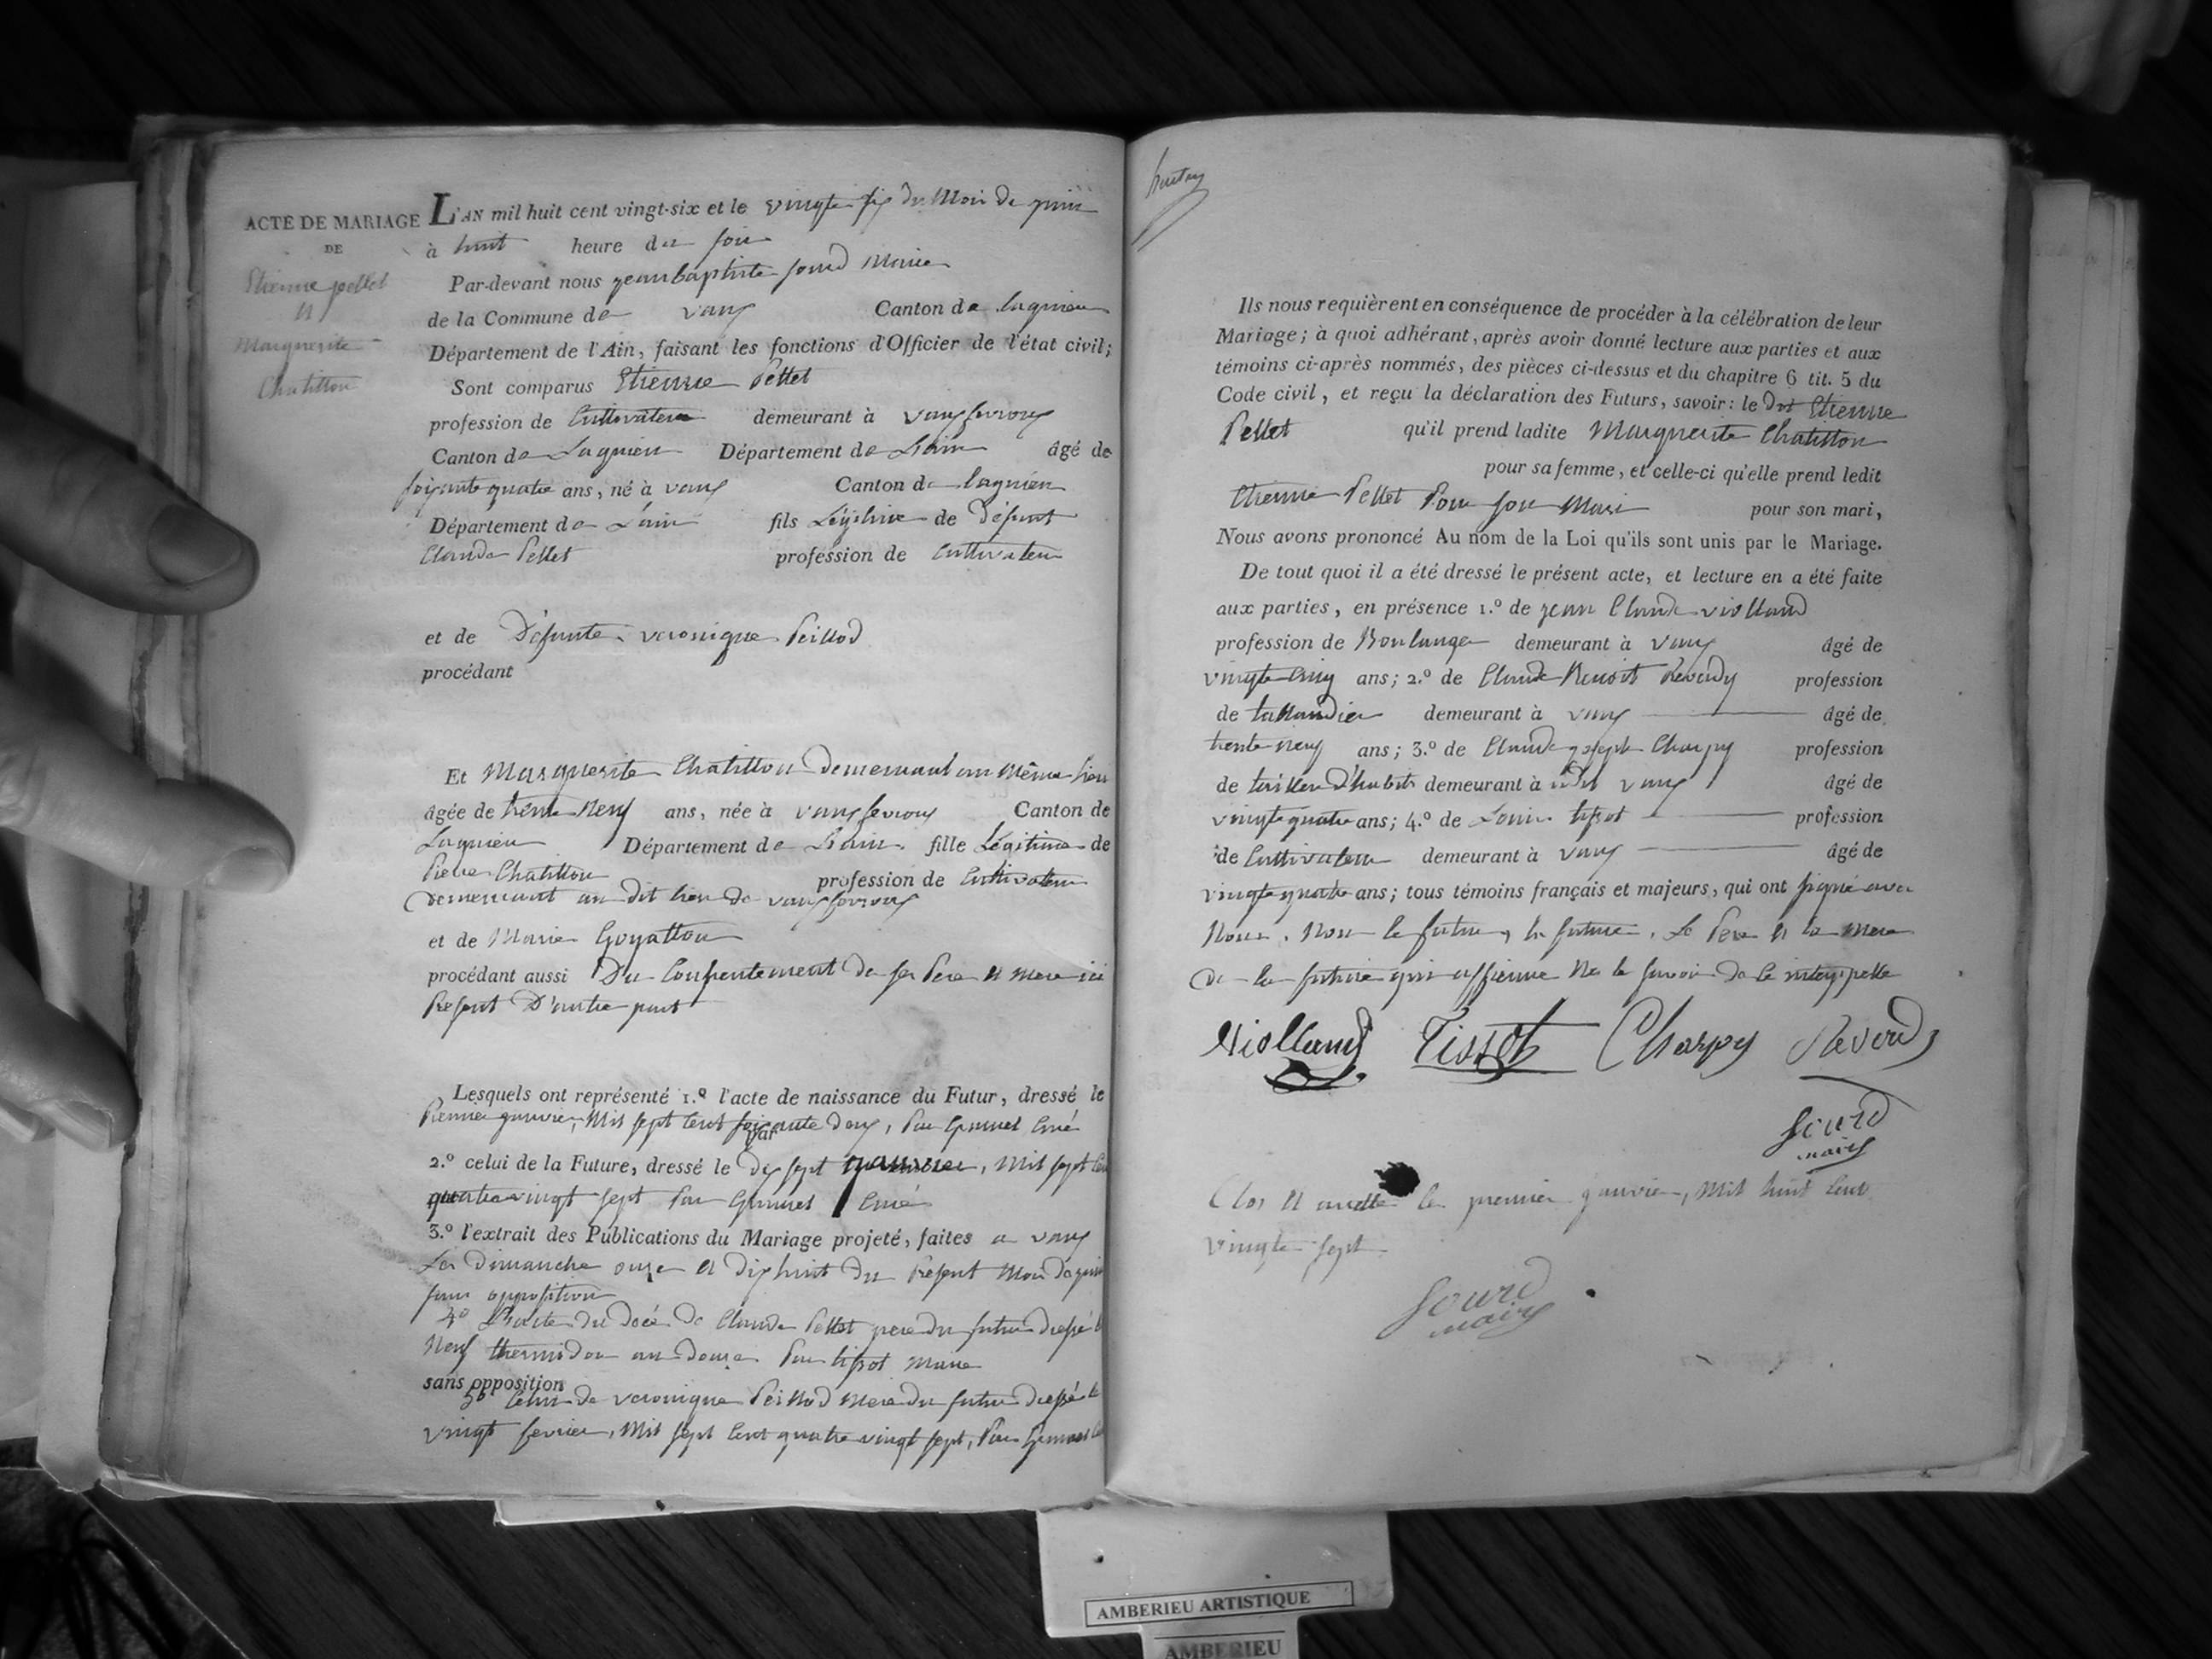 ACTE DE MARIAGE
DE
Etienne pellet
et
Marguerite
Chatillon
L'AN mil huit cent vingt-six et le vingte six du Mois de juin
à huit heure du soir
Par-devant nous jean baptiste sourd Maire
de la Commune de vaux Canton de lagnieu
Département de l'Ain, faisant les fonctions d'Officier de l'état civil;
Sont comparus Etienne Pellet
profession de Cultivateur demeurant à vaux fevroux
Canton de Lagnieu Département de L'ain âgé de
soixante quatre ans, né à vaux Canton de lagnieu
Département de L'ain fils Légitime de Défunt
Claude Pellet profession de Cultivateur
et de Défunte veronique Peillod
procédant
Et Marguerite Chatillon demeurant au Même lieu
âgée de trente Neuf ans, née à vaux fevroux Canton de
Lagnieu Département de L'ain fille Légitime de
Pierre Chatillon profession de Cultivateur
demeurant au dit lieu de vaux fevroux
et de Marie Goyatton
procédant aussi Du Consentement de ses Pere et mere ici
Présent D'autre part
Lesquels ont représenté 1.º l'acte de naissance du Futur, dressé le
Premier janvier, Mil sept Cent soixante deux, Par Curé
2.º celui de la Future, dressé le dix sept janvier, Mil sept Cent
quatre vingt sept Par Curé
3.º l'extrait des Publications du Mariage projeté, faites a vaux
Les dimanche onze et dix huit du Présent Mois de juin
sans opposition
4º L'acte du décé de Claude Pellet pere du futur dressé le
Neuf thermidor an douze Par tissot maire
sans opposition
5º Celui de veronique Peillod Mere du futur dressé le
vingt fevrier, Mil sept Cent quatre vingt sept, Par
Ils nous requièrent en conséquence de procéder à la célébration de leur
Mariage; à quoi adhérant, après avoir donné lecture aux parties et aux
témoins ci-après nommés, des pièces ci-dessus et du chapitre 6 tit. 5 du
Code civil, et reçu la déclaration des Futurs, savoir: le Dit Etienne
Pellet qu'il prend ladite Marguerite Chatillon
pour sa femme, et celle-ci qu'elle prend ledit
Etienne Pellet Pour son Mari pour son mari,
Nous avons prononcé Au nom de la Loi qu'ils sont unis par le Mariage.
De tout quoi il a été dressé le présent acte, et lecture en a été faite
aux parties, en présence 1.º de jean Claude violland
profession de Boulanger demeurant à vaux âgé de
vingte Cinq ans; 2.º de Claude Benoit Reverdy profession
de taillandier demeurant à vaux âgé de
trente neuf ans; 3.º de Claude joseph Charpy profession
de tailleur d'habits demeurant à vaux âgé de
vingte quatre ans; 4.º de Louis tissot profession
de Cultivateur demeurant à vaux âgé de
vingte quatre ans; tous témoins français et majeurs, qui ont signé avec
Nous, Non le futur, la future, Le Pere et la Mere
de la future qui
Violland Tissot Charpy Reverdy
Sourd
maire
Clos et arretté le premier janvier, Mil huit Cent
vingte sept
Sourd
maire
AMBERIEU ARTISTIQUE
AMBERIEU